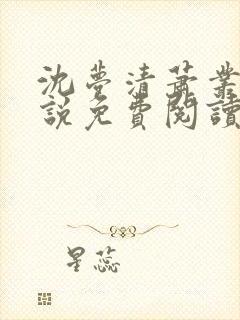 沈夢清蕭業
說免費閱讀
星蕊